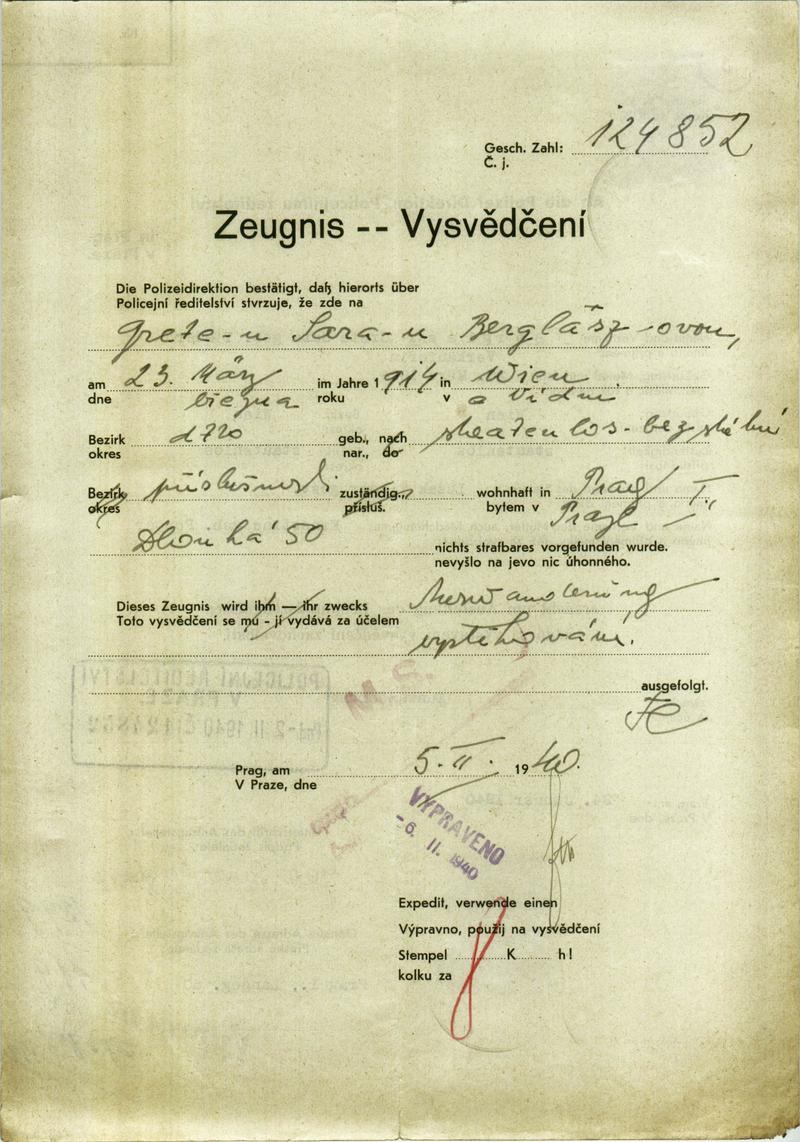 Gesch. Zahl: 124852
Č. j.
Zeugnis -- Vysvědčení
Die Polizeidirektion bestätigt, daß hierorts über
Policejní ředitelství stvrzuje, že zde na
Grete-u Sara-u Bergläsz-ovou,
am 23. März im Jahre 1914 in Wien
dne března roku v Vídni
Bezirk dtto geb., nach staatenlos - bez státní
okres nar., do
Bezirk příslušnosti zuständig., wohnhaft in Prag I.,
okres přísluš. bytem v Praze
Dlouhá 50 nichts strafbares vorgefunden wurde.
nevyšlo na jevo nic úhonného.
Dieses Zeugnis wird ihm — ihr zwecks
Toto vysvědčení se mu - jí vydává za účelem
vystěhování.
ausgefolgt.
Prag, am 5. II. 1940.
V Praze, dne
VYPRAVENO
-6. II. 1940
Expedit, verwende einen
Výpravno, použij na vysvědčení
Stempel K h!
kolku za
POLICEJNÍ ŘEDITELSTVÍ
V PRAZE
M. S.